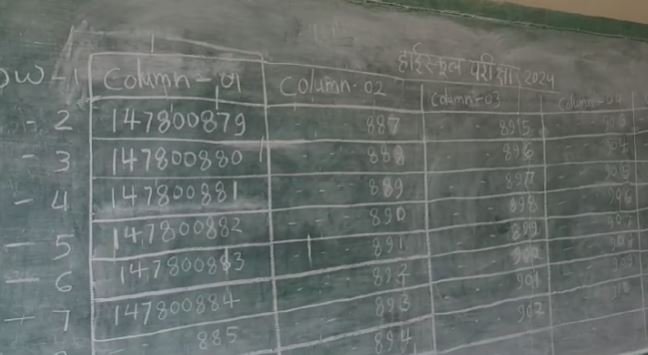 हाईस्कूल परीक्षा 2024
ow-1 Column-01 Column-02 Column-03 Column-04
- 2 147800879 - - 887 - - 895
- 3 147800880 - - 888 - - 896 - - 904
- 4 147800881 - - 889 - - 897 - - 905
- 5 147800882 - - 890 - - 898 - - 906
- 6 147800883 - - 891 - - 899
- 7 147800884 - - 892 - - 900
- - 885 - - 893 - - 901
- - 894 - - 902